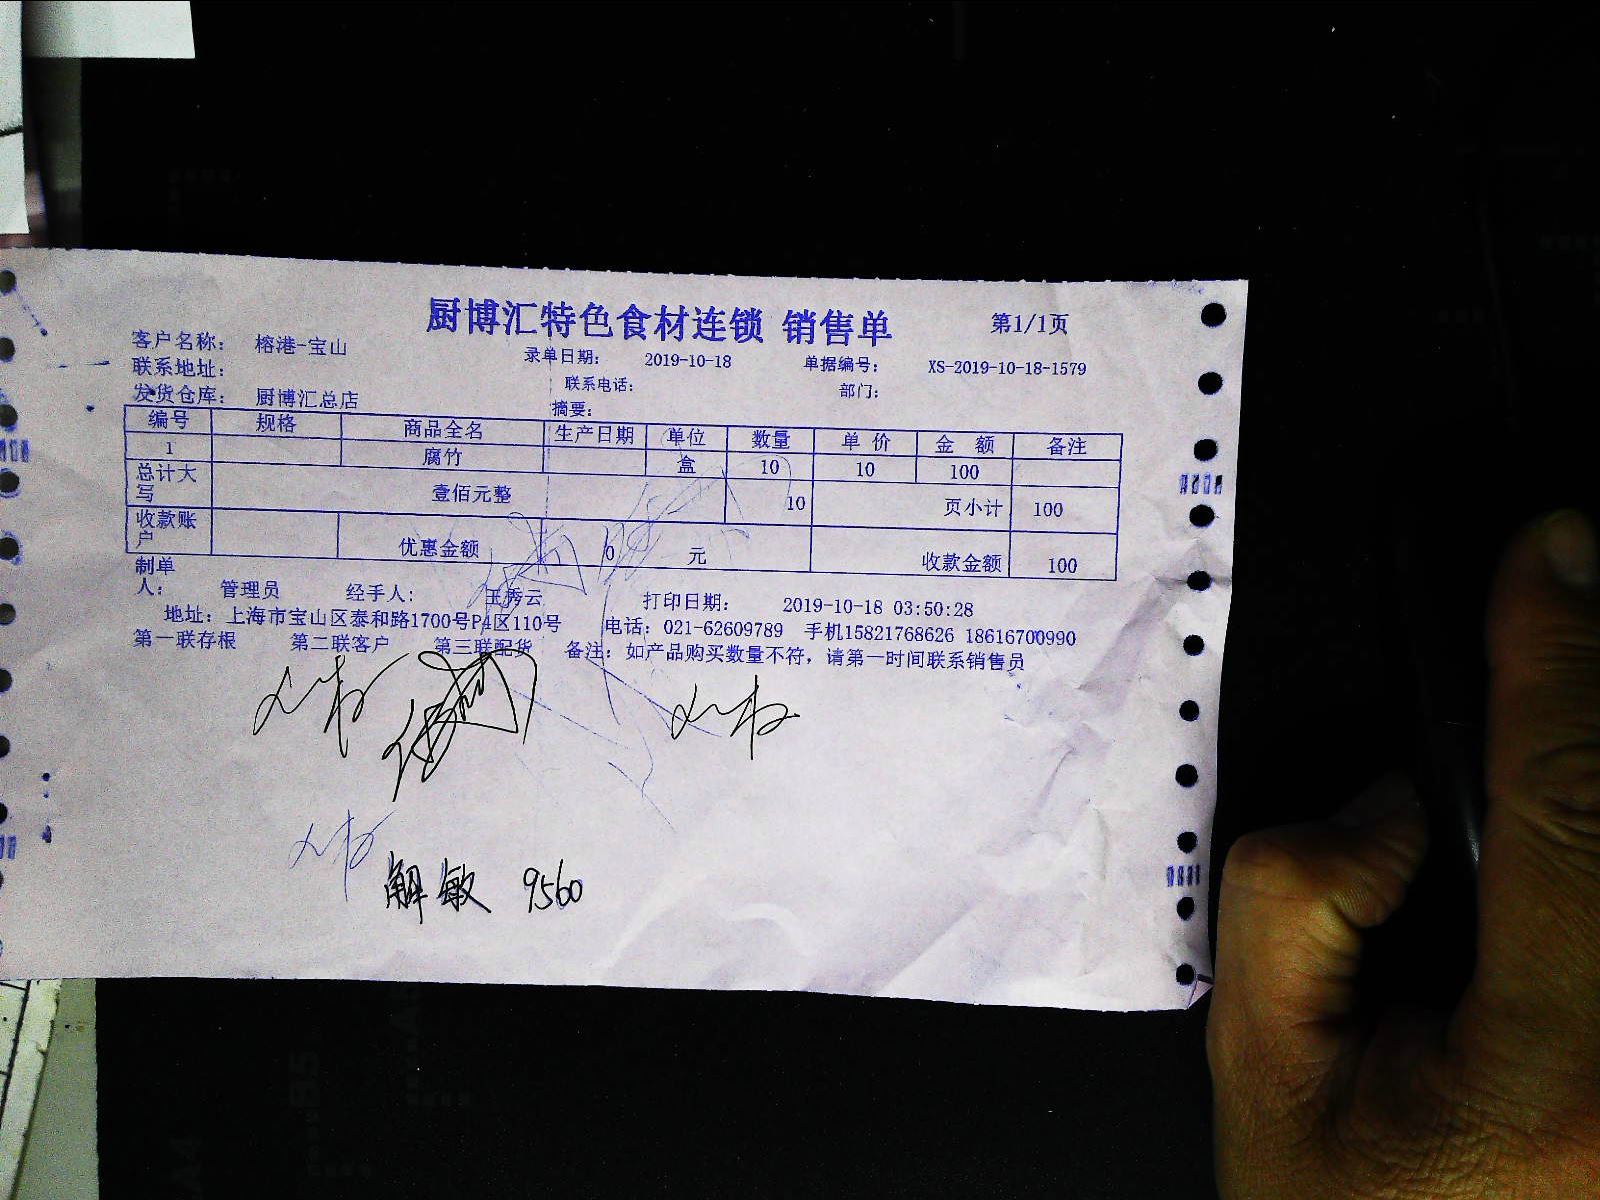 厨博汇特色食材连锁 销售单 第1/1页
客户名称: 榕港-宝山 录单日期: 2019-10-18 单据编号: XS-2019-10-18-1579
联系地址: 联系电话: 部门:
发货仓库: 厨博汇总店 摘要:
编号 规格 商品全名 生产日期 单位 数量 单 价 金 额 备注
1 腐竹 盒 10 10 100
总计大写 壹佰元整 10 页小计 100
收款账户 优惠金额 0 元 收款金额 100
制单人: 管理员 经手人: 王秀云 打印日期: 2019-10-18 03:50:28
地址: 上海市宝山区泰和路1700号P4区110号 电话: 021-62609789 手机15821768626 18616700990
第一联存根 第二联客户 第三联配货 备注: 如产品购买数量不符, 请第一时间联系销售员
解敏 9560